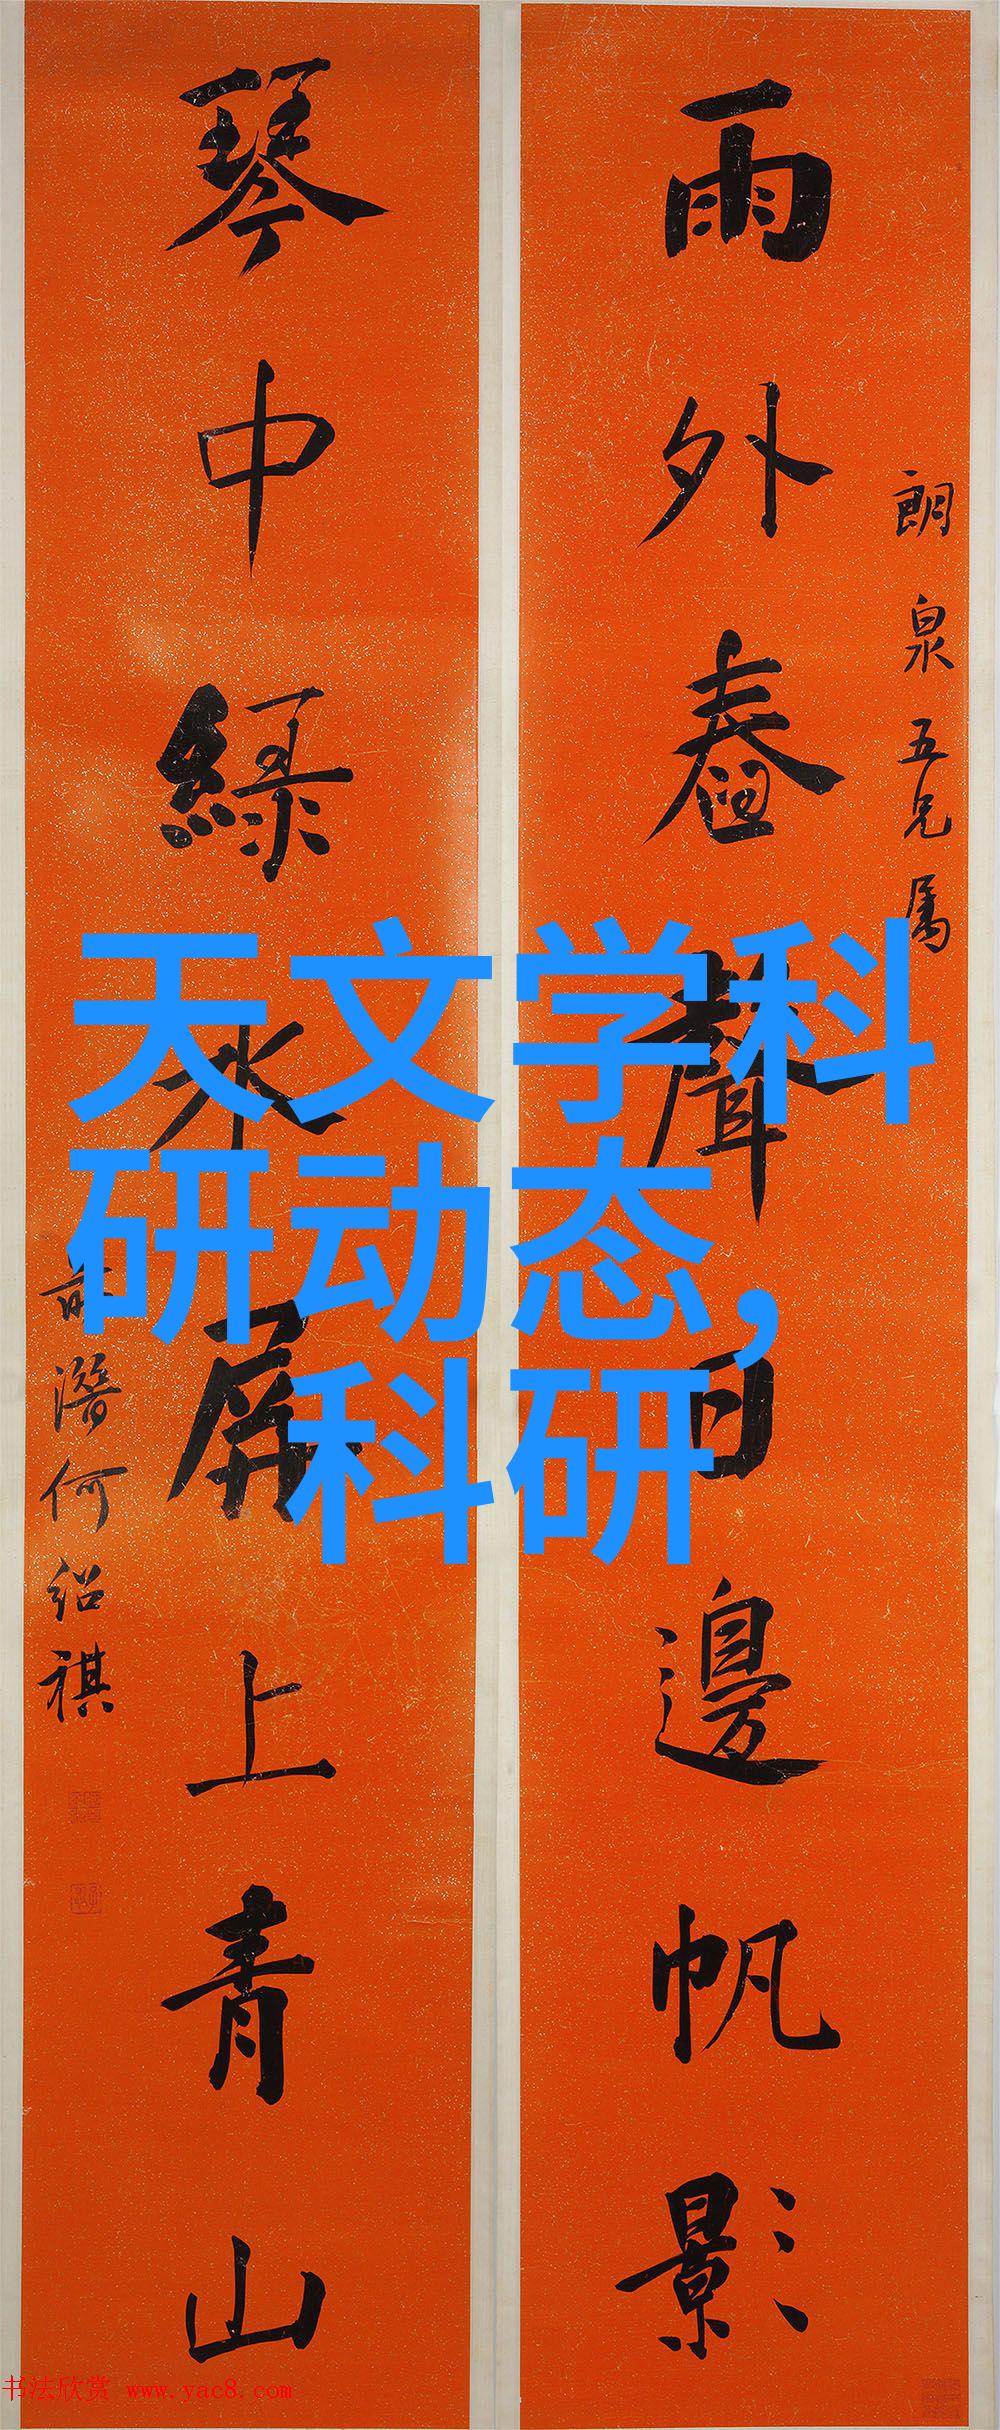 朗泉五兄属
雨外舂聲邊帆影
琴中綠水屏上青山
潛何紹祺
天文学科
研动态,
科研
书法欣赏 www.yac8.com